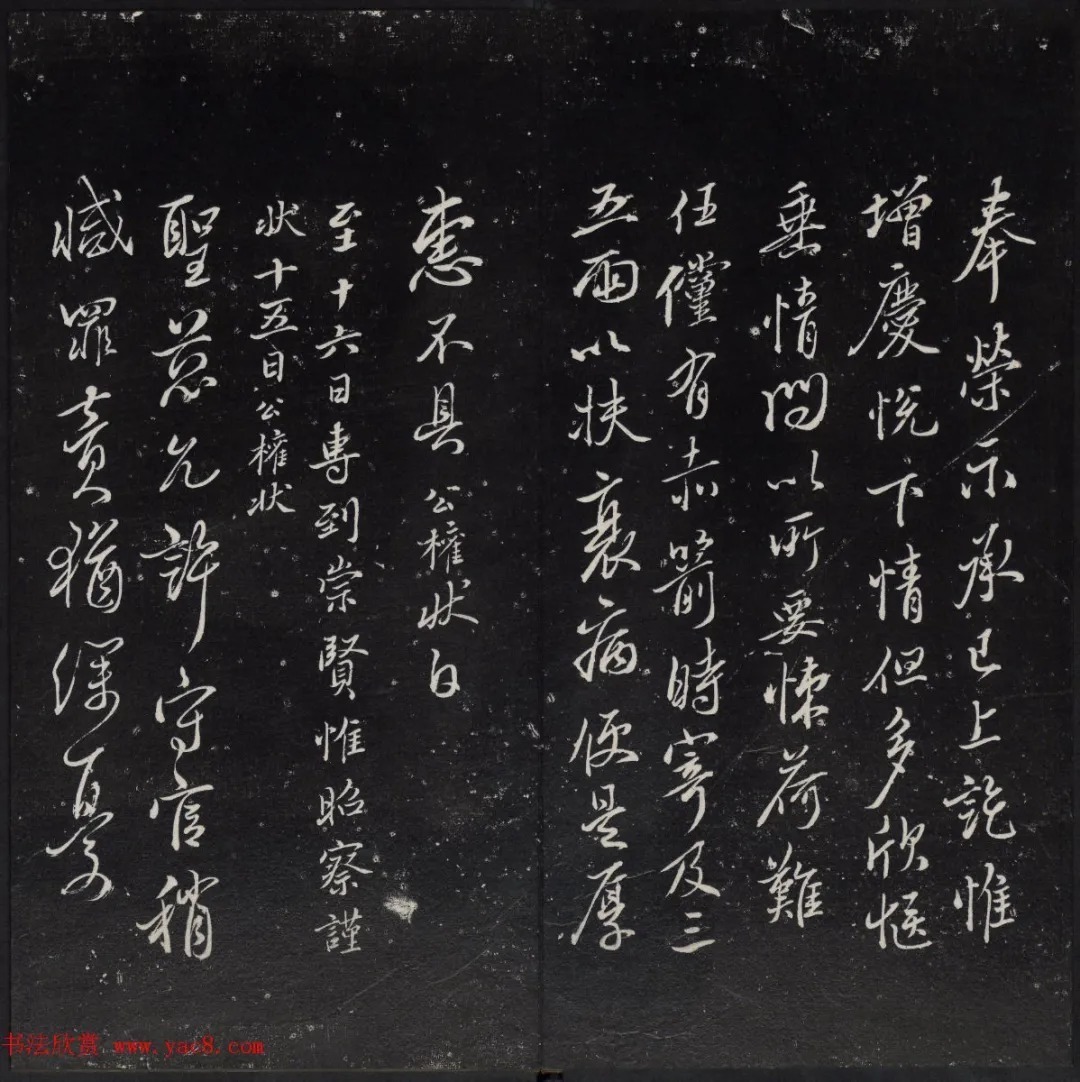 奉榮示承已上訖惟
增慶悅下情但多欣愜
垂情問以所要悚荷難
任儻有赤箭時寄及三
五兩以扶衰病便是厚
惠不具公權狀白
至十六日專到崇賢惟昭察謹
狀十五日公權狀
聖慈允許守官稍
減罪責猶深夏
书法欣赏 www.yac8.com